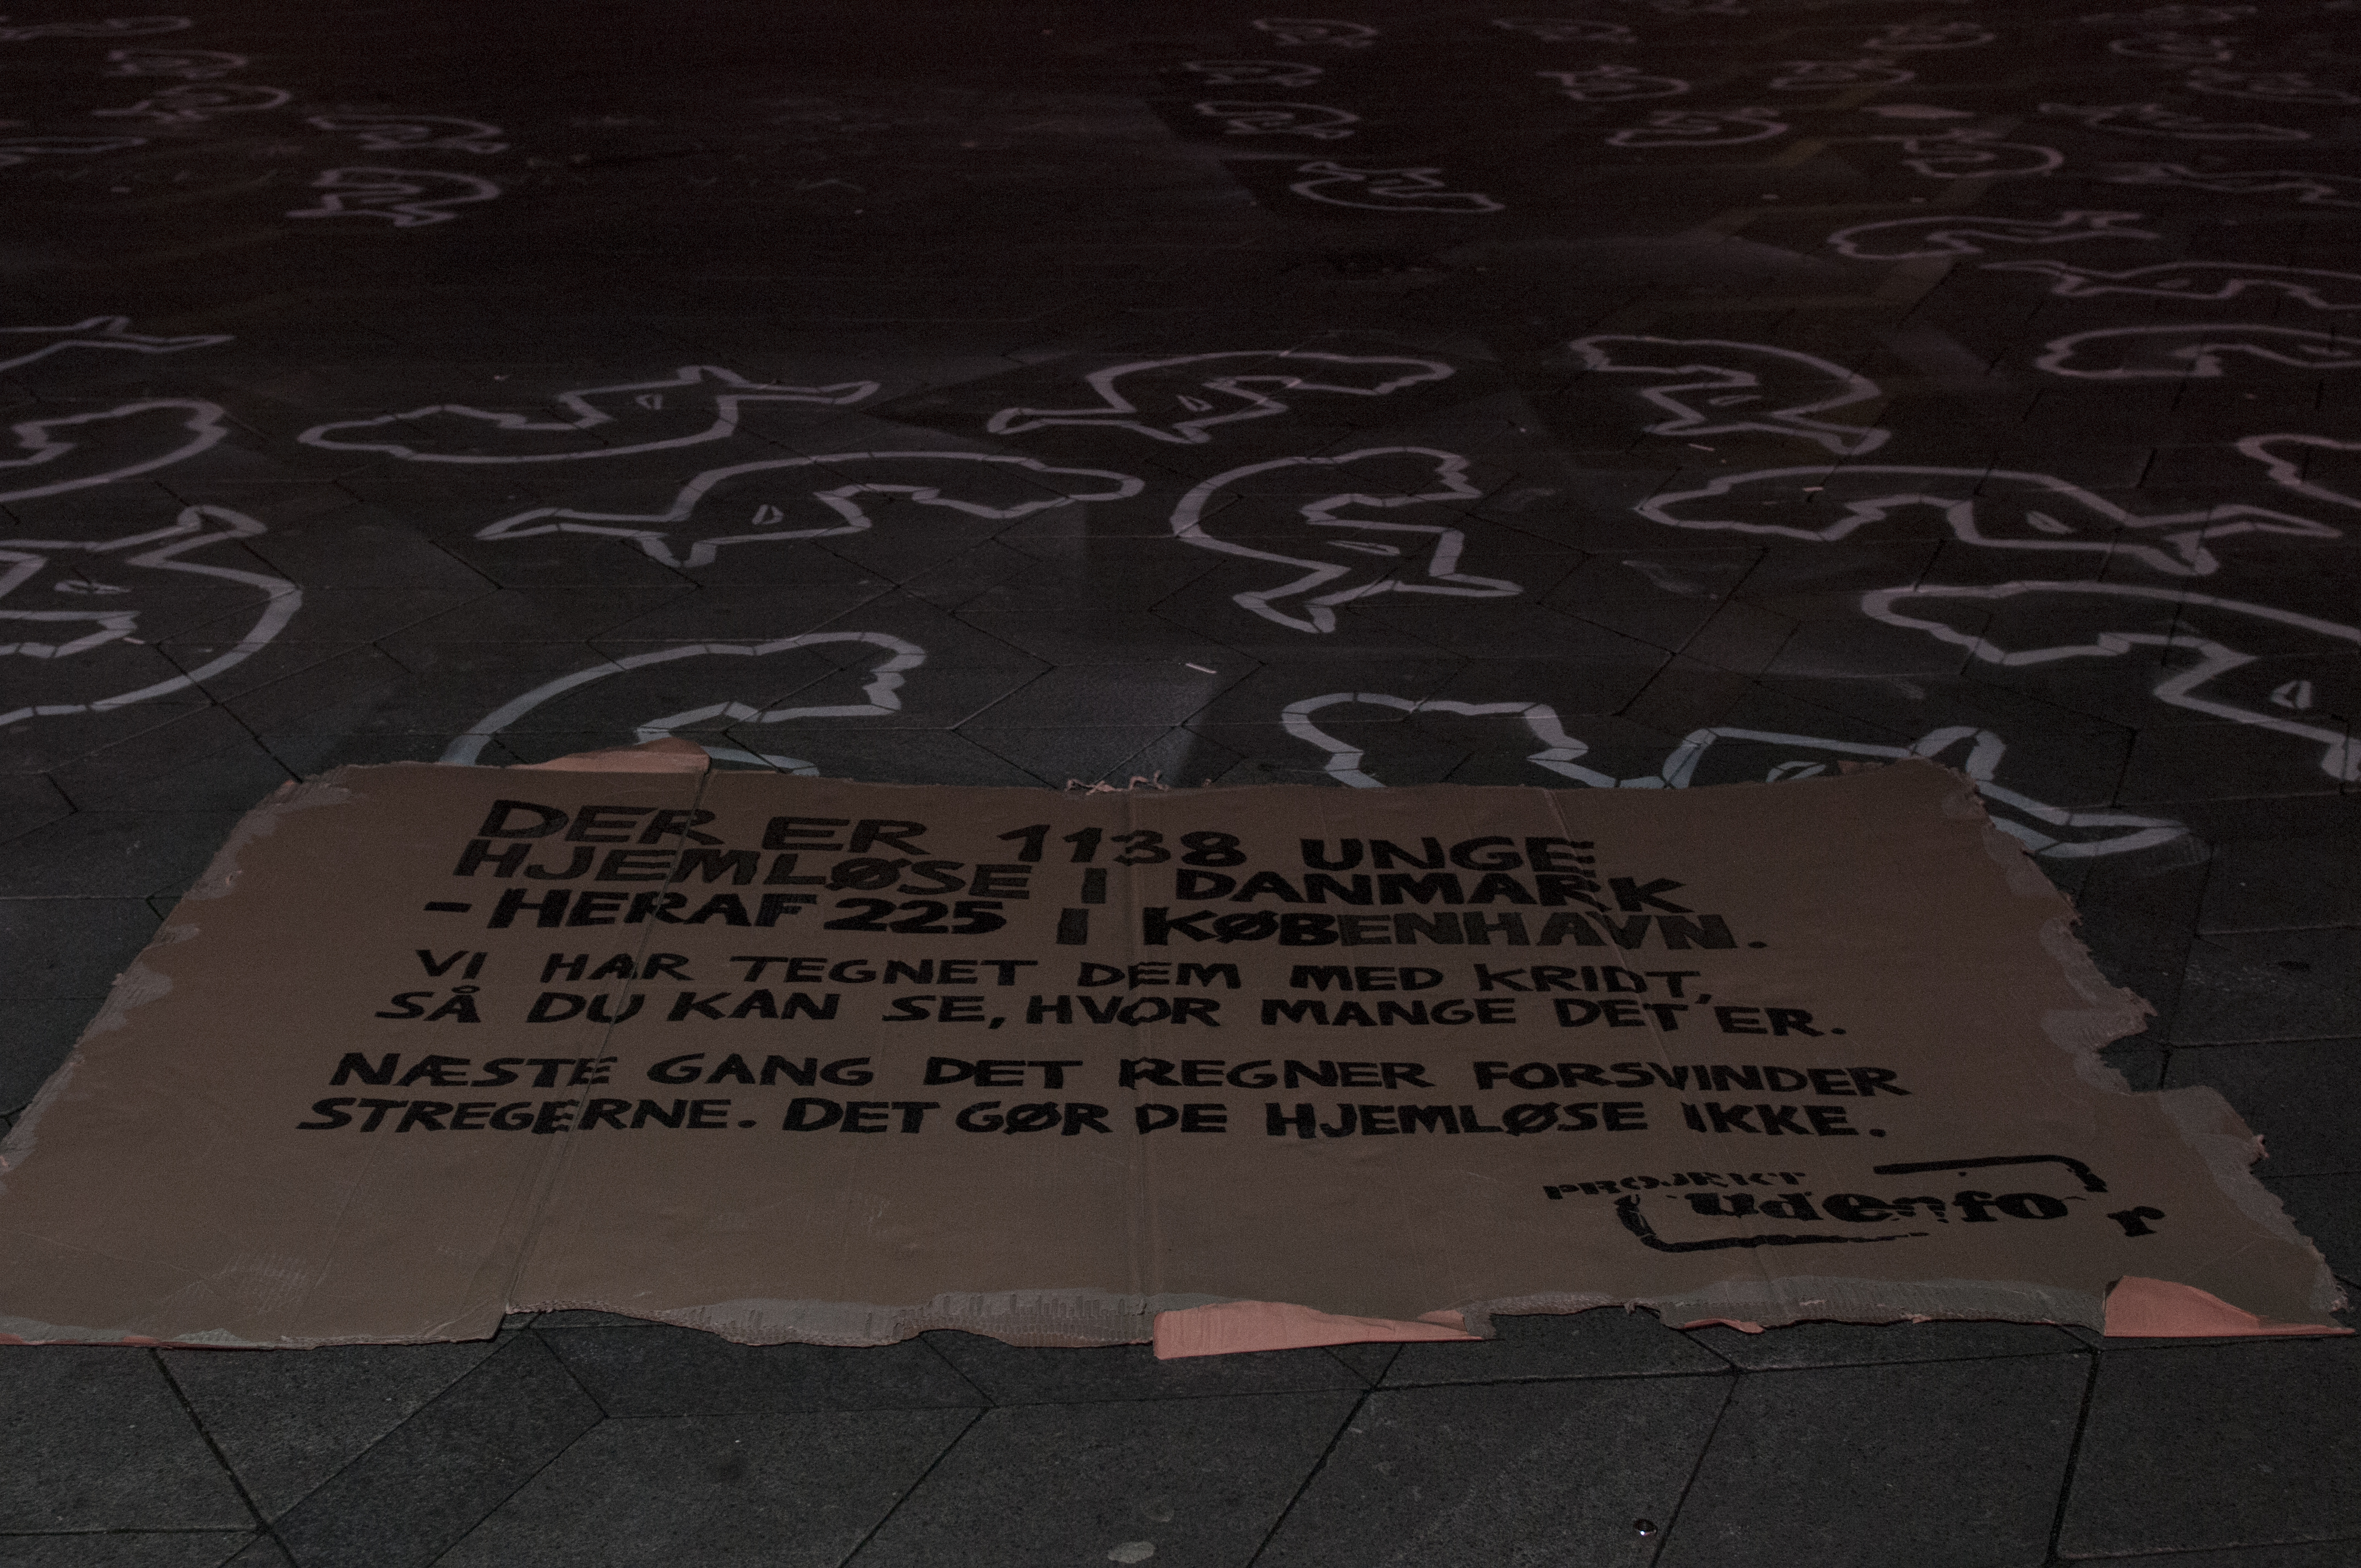 DER ER 1138 UNGE
HJEMLØSE I DANMARK
- HERAF 225 I KØBENHAVN.
VI HAR TEGNET DEM MED KRIDT,
SÅ DU KAN SE, HVOR MANGE DET ER.
NÆSTE GANG DET REGNER FORSVINDER
STREGERNE. DET GØR DE HJEMLØSE IKKE.
PROJEKT
udenfor